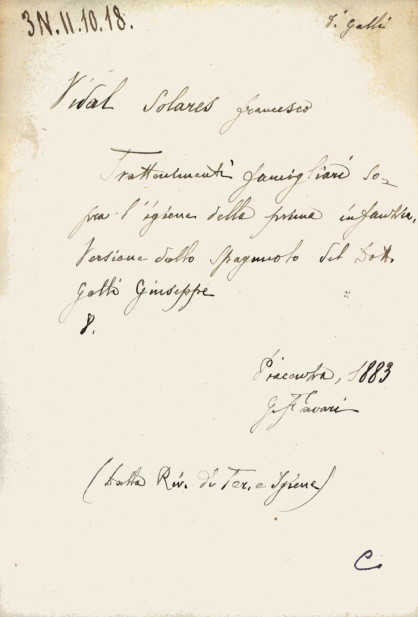 3N.11.10.18.
v. Galli
Vidal Solares Francesco
Trattenimenti famigliari so-
pra l'igiene della prima infanzia.
Versione dallo spagnuolo del Dott.
Galli Giuseppe
8.
Piacenza, 1883
G. Favari
(Dalla Riv. di Ter. e Igiene)
C.